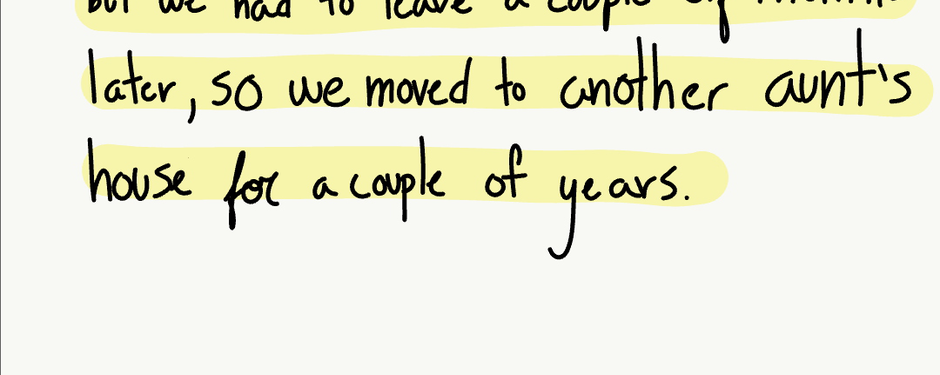 but we had to leave a couple of months
later, so we moved to another aunt's
house for a couple of years.